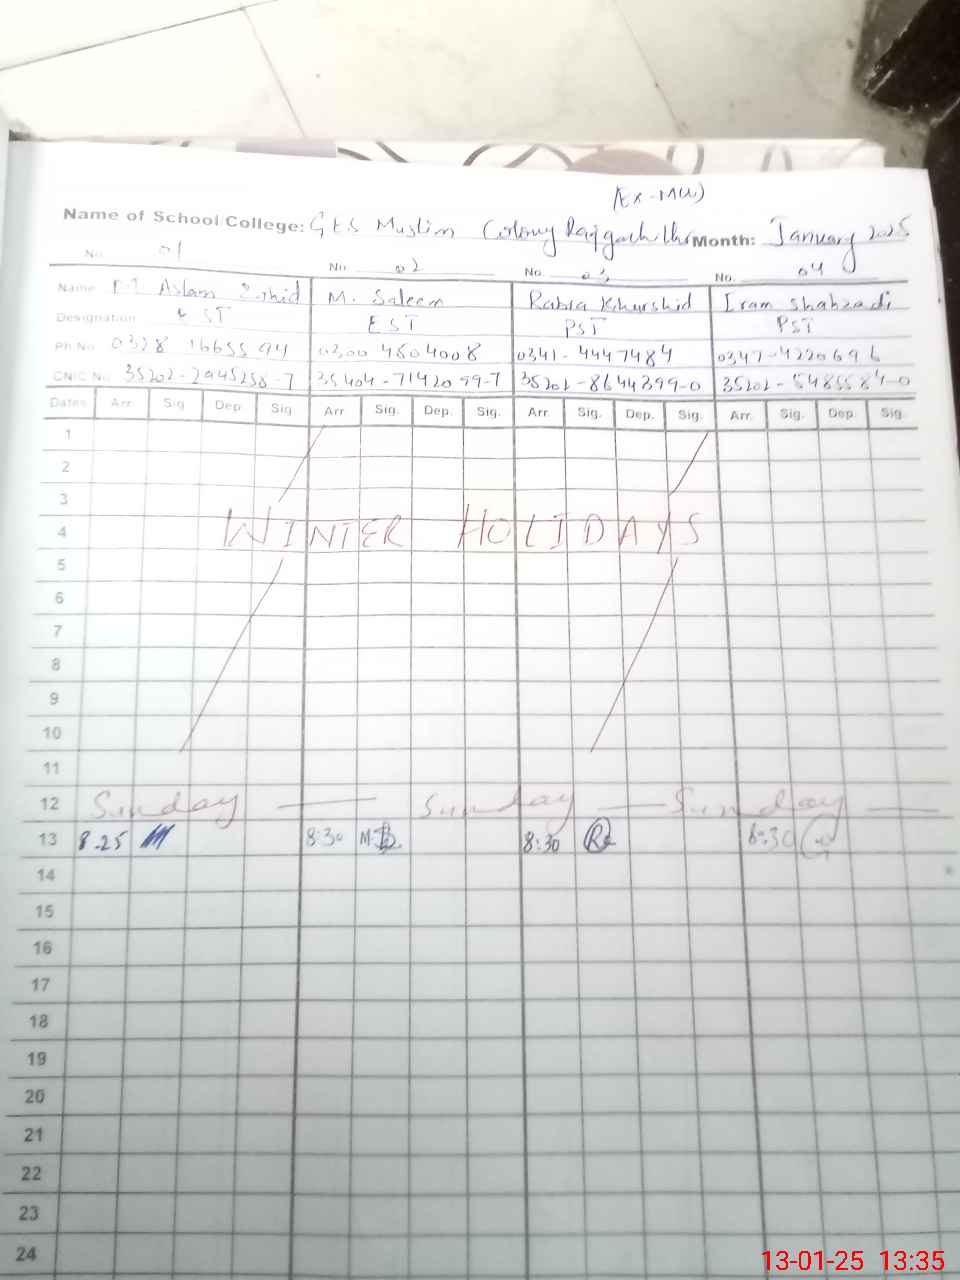 (Ex-MCL)
Name of School/College: GES Muslim Colony Rajgarh Lhr Month: January 2025
No. 01 No. 02 No. 03 No. 04
Name M. Aslam M. Saleem Rabia Khurshid Iram Shahzadi
Designation EST EST PST PST
Ph No. 0328 1665594 0300 4804008 0341-4447484 0347-4220696
CNIC No. 35202-2945258-7 35404-7142099-7 35202-8644399-0 35202-5485584-0
Dates Arr. Sig. Dep. Sig. Arr. Sig. Dep. Sig. Arr. Sig. Dep. Sig. Arr. Sig. Dep. Sig.
1
2
3
4 WINTER HOLIDAYS
5
6
7
8
9
10
11
12 Sunday Sunday Sunday
13 8.25 8:30 8:30 8:30
14
15
16
17
18
19
20
21
22
23
24
13-01-25 13:35